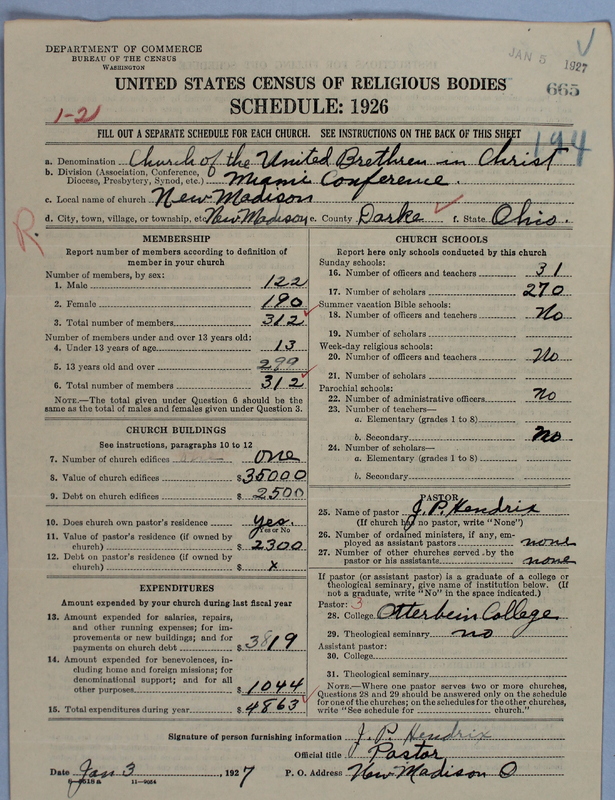 DEPARTMENT OF COMMERCE
BUREAU OF THE CENSUS
WASHINGTON
JAN 5 1927
665
UNITED STATES CENSUS OF RELIGIOUS BODIES
SCHEDULE: 1926
1-21
FILL OUT A SEPARATE SCHEDULE FOR EACH CHURCH. SEE INSTRUCTIONS ON THE BACK OF THIS SHEET
194
a. Denomination Church of the United Brethren in Christ
b. Division (Association, Conference, Diocese, Presbytery, Synod, etc.) Miami Conference.
c. Local name of church New Madison
d. City, town, village, or township, etc. New Madison e. County Darke f. State Ohio.
R.
MEMBERSHIP
Report number of members according to definition of
member in your church
Number of members, by sex:
1. Male 122
2. Female 190
3. Total number of members 312
Number of members under and over 13 years old:
4. Under 13 years of age 13
5. 13 years old and over 299
6. Total number of members 312
NOTE.—The total given under Question 6 should be
same as the total of males and females given under Question 3.
CHURCH BUILDINGS
See instructions, paragraphs 10 to 12
7. Number of church edifices one
8. Value of church edifices $35000
9. Debt on church edifices $2500
10. Does church own pastor's residence yes.
Yes or No
11. Value of pastor's residence (if owned by
church) $2300
12. Debt on pastor's residence (if owned by
church) $ x
EXPENDITURES
Amount expended by your church during last fiscal year
13. Amount expended for salaries, repairs,
and other running expenses; for im-
provements or new buildings; and for
payments on church debt $3819
14. Amount expended for benevolences, in-
cluding home and foreign missions; for
denominational support; and for all
other purposes $1044
15. Total expenditures during year $4863
CHURCH SCHOOLS
Report here only schools conducted by this church
Sunday schools:
16. Number of officers and teachers 31
17. Number of scholars 270
Summer vacation Bible schools:
18. Number of officers and teachers No
19. Number of scholars
Week-day religious schools:
20. Number of officers and teachers No
21. Number of scholars
Parochial schools:
22. Number of administrative officers No
23. Number of teachers—
a. Elementary (grades 1 to 8)
b. Secondary No
24. Number of scholars—
a. Elementary (grades 1 to 8)
b. Secondary
PASTOR
25. Name of pastor J. P. Hendrix
(If church has no pastor, write "None")
26. Number of ordained ministers, if any, em-
ployed as assistant pastors none
27. Number of other churches served by the
pastor or his assistants none
If pastor (or assistant pastor) is a graduate of a college or
theological seminary, give name of institution below. (If
not a graduate, write "No" in the space indicated.)
Pastor: 3
28. College Otterbein College
29. Theological seminary no
Assistant pastor:
30. College
31. Theological seminary
NOTE.—Where one pastor serves two or more churches,
Questions 28 and 29 should be answered only on the schedule
for one of the churches; on the schedules for the other churches,
write "See schedule for church."
Signature of person furnishing information J. P. Hendrix
Official title Pastor
Date Jan 3, 1927 P. O. Address New Madison O
11—9054